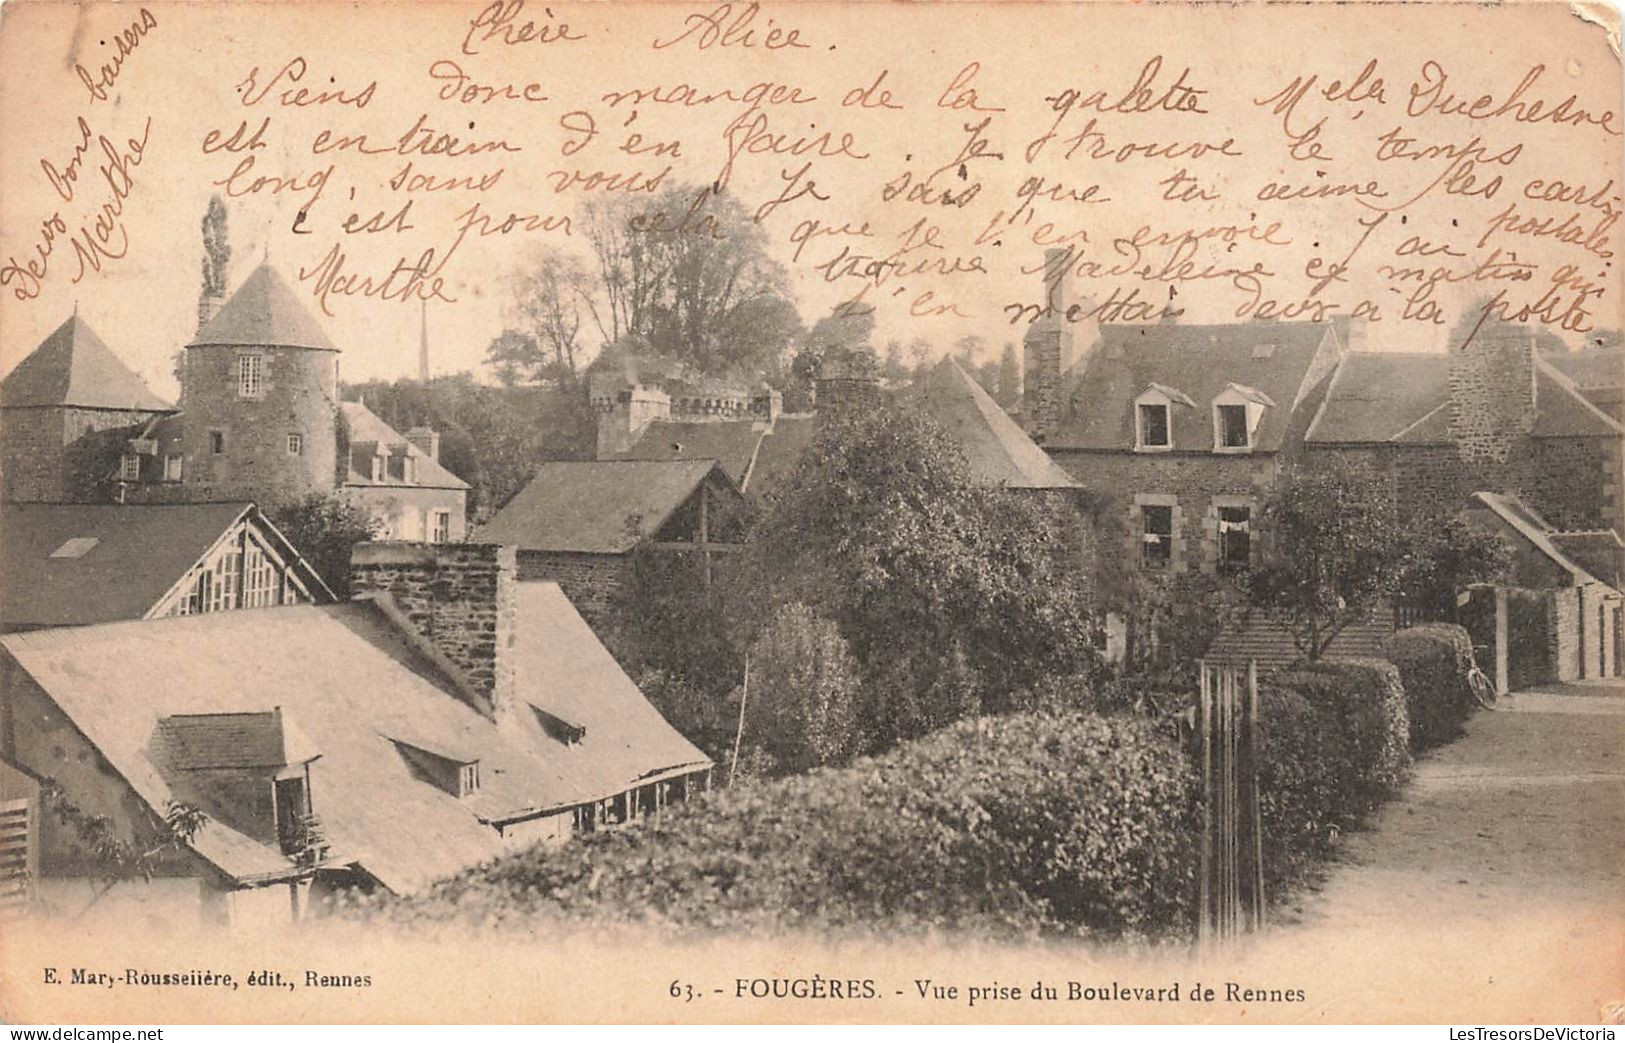 Chère Alice.
Viens donc manger de la galette Mela Duchesne
est en train d'en faire. Je trouve le temps
long, sans vous. Je sais que tu aime les cartes
postales,
c'est pour cela que je t'en envoie. J'ai
trouvé Madeleine ce matin qui
t'en mettais deux à la poste
Marthe
Deux bons baisers
Marthe
E. Mary-Rousselière, édit., Rennes
63. - FOUGÈRES. - Vue prise du Boulevard de Rennes
LesTresorsDeVictoria